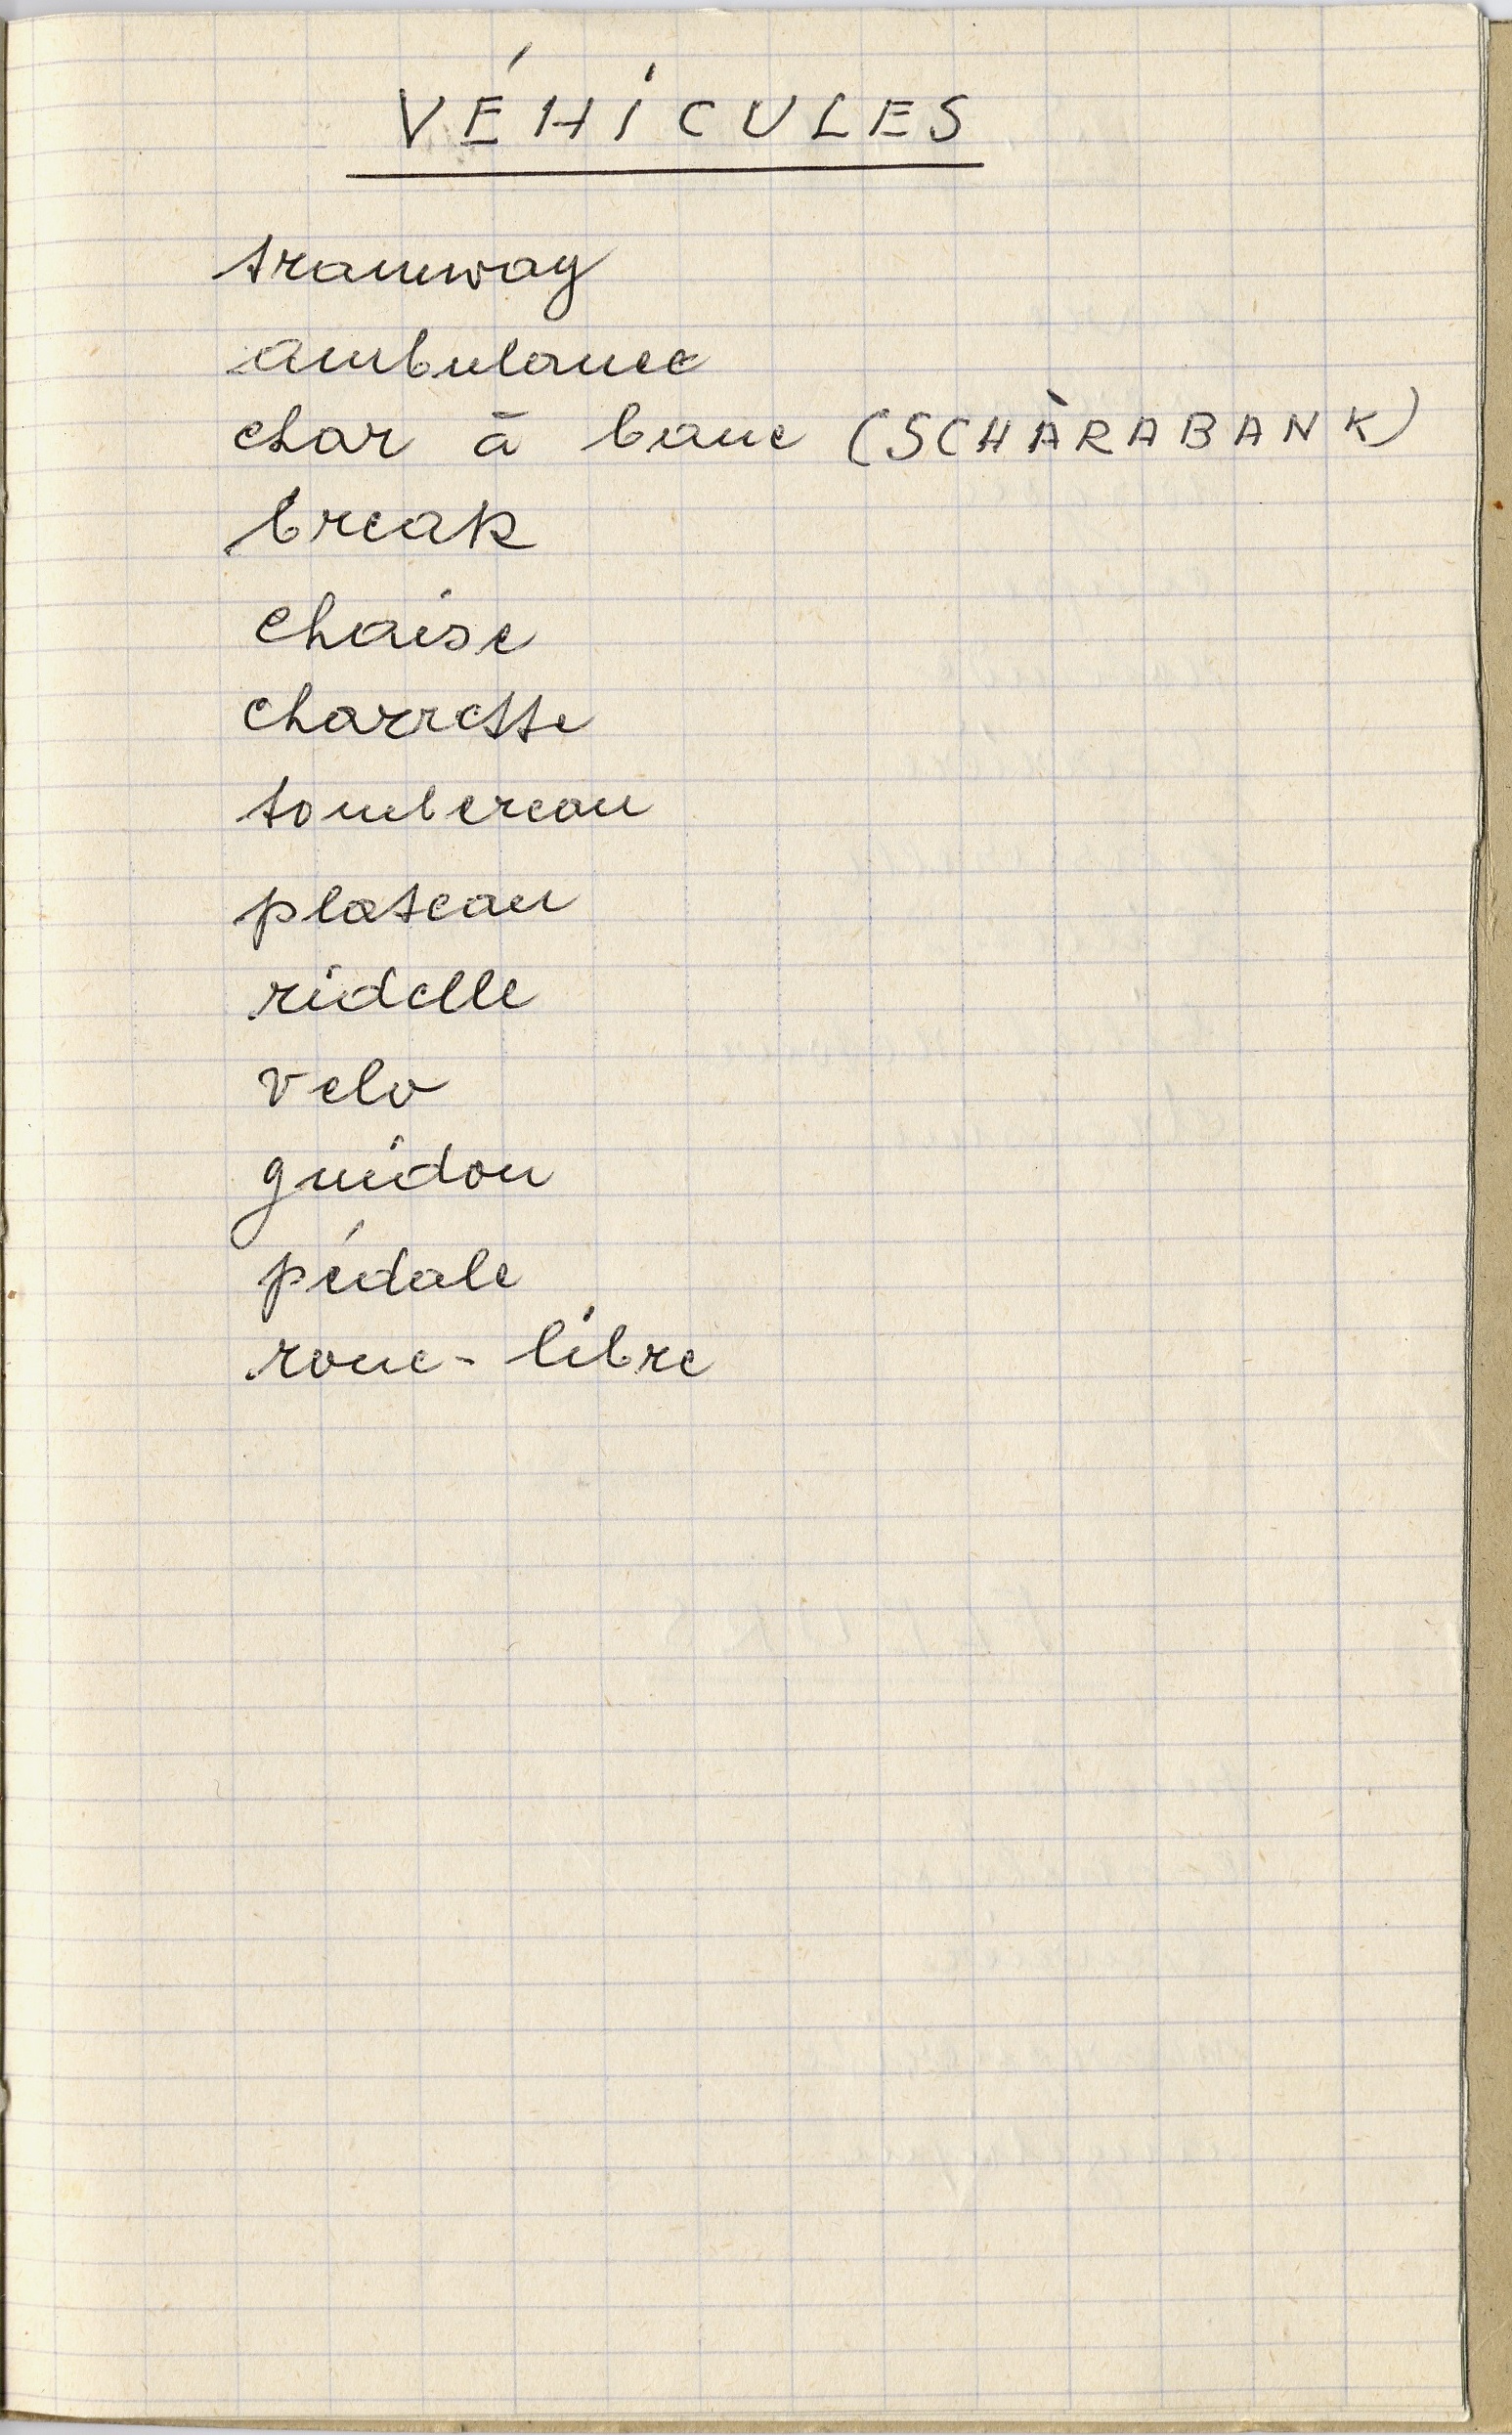 VÉHICULES
tramway
ambulance
char à banc (SCHÀRABANK)
break
chaise
charrette
tombereau
plateau
ridelle
velo
guidon
pédale
roue-libre